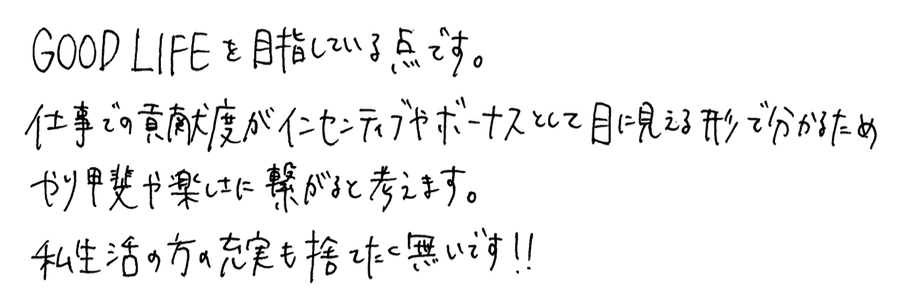 GOOD LIFEを目指している点です。
仕事での貢献度がインセンティブやボーナスとして目に見える形で分かるため
やり甲斐や楽しさに繋がると考えます。
私生活の方の充実も捨てたく無いです!!